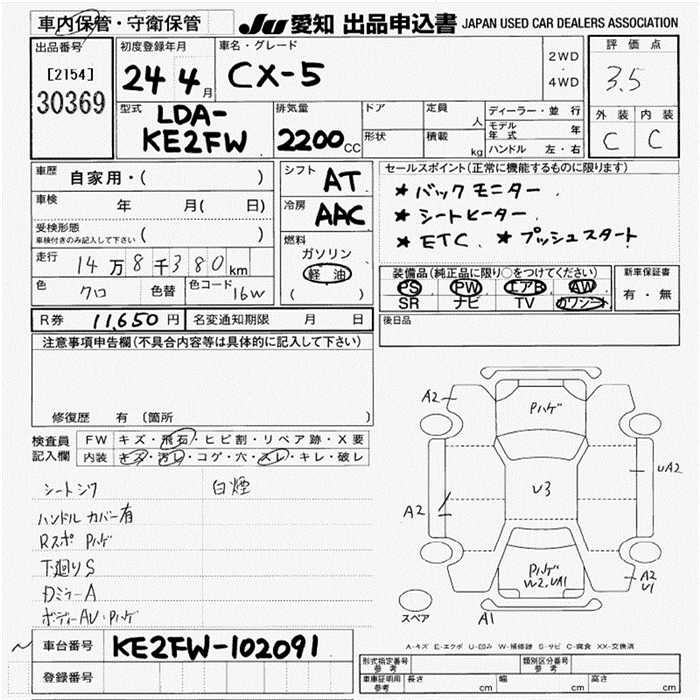 車内保管・守衛保管
JU 愛知 出品申込書 JAPAN USED CAR DEALERS ASSOCIATION
出品番号
[2154]
30369
初度登録年月
24 4月
車名・グレード
CX-5
2WD
・
4WD
評価点
3.5
外装 内装
C C
型式
LDA-
KE2FW
排気量
2200cc
ドア
形状
定員 人
積載 kg
ディーラー・並行
モデル年式 年
ハンドル 左・右
車歴 自家用・( )
車検 年 月( 日)
受検形態
車検付きのみ記入して下さい ( )
走行 14万8千380km
色 クロ 色替 色コード 16W
シフト AT
冷房 AAC
燃料
ガソリン
軽油
( )
セールスポイント(正常に機能するものに限ります)
★バックモニター
★シートヒーター
★ETC ★プッシュスタート
装備品(純正品に限り○をつけてください)
PS PW エアB AW
SR ナビ TV カワシート
新車保証書
有・無
R券 11,650円 名変通知期限 月 日
後日品
注意事項申告欄(不具合内容等は具体的に記入して下さい)
修復歴 有 (箇所
検査員
記入欄
FW キズ・飛石・ヒビ割・リペア跡・X要
内装 キズ・汚レ・コゲ・穴・スレ・キレ・破レ
シートシワ 白煙
ハンドルカバー有
Rスポ Pハゲ
下廻りS
DミラーA
ボディーAU・Pハゲ
A2
Pハゲ
UA2
U3
A2
Pハゲ
W2.UA1
A2
U1
スペア
A1
A-キズ E-エクボ U-凹み W-補修跡 S-サビ C-腐食 XX-交換済
車台番号 KE2FW-102091
登録番号
形式指定番号
参考
類別区分番号
参考
車庫証明用
参考
長さ cm 幅 cm 高さ cm